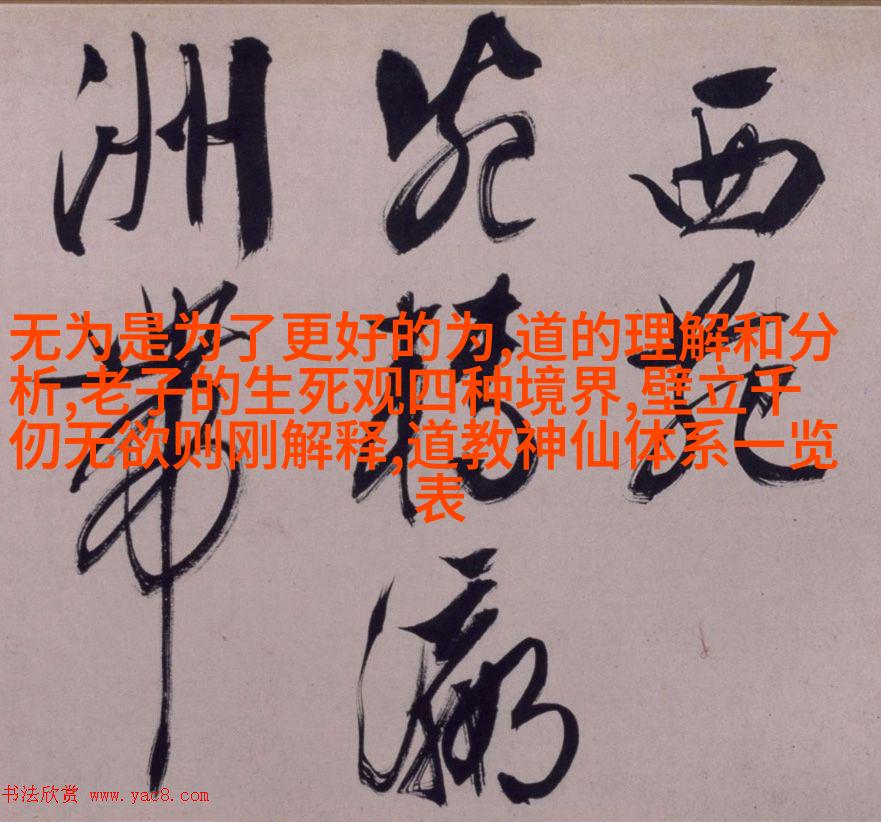 西苑
瀛
洲
无为是为了更好的为,道的理解和分
析,老子的生死观四种境界,壁立千
仞无欲则刚解释,道教神仙体系一览
表
书法欣赏 www.yac8.com